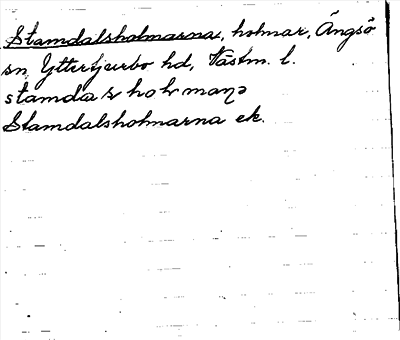 Stamdalsholmarna, holmar, Ängsö
sn, Yttertjurbo hd, Västm. l.
stamdas holmaṇə
Stamdalsholmarna ek.